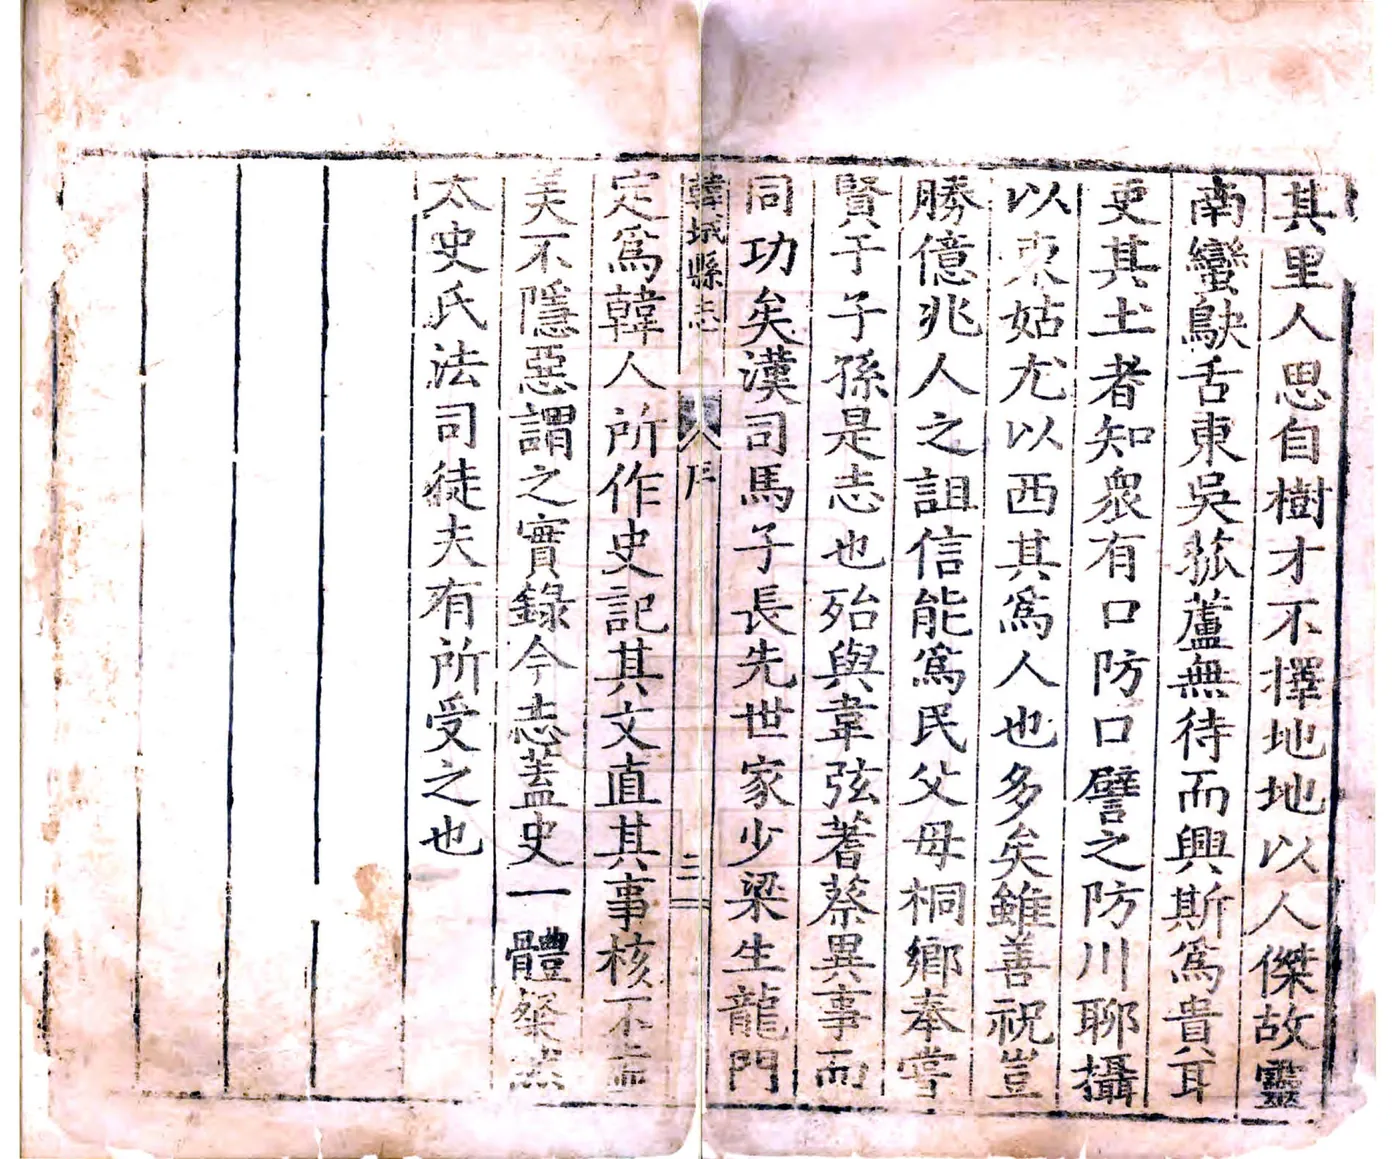 其里人思自樹才不擇地地以人傑故靈
南蠻鴃舌東吳菰蘆無待而興斯爲貴耳
更其土者知衆有口防口譬之防川聊攝
以東姑尤以西其爲人也多矣雖善祝豈
勝億兆人之詛信能爲民父母桐鄉奉嘗
賢于子孫是志也殆與韋弦蓍蔡異事而
同功矣漢司馬子長先世家少梁生龍門
韓城縣志
序
三
定爲韓人所作史記其文直其事核不虛
美不隱惡謂之實錄今志蓋史一體粲然
太史氏法司徒夫有所受之也